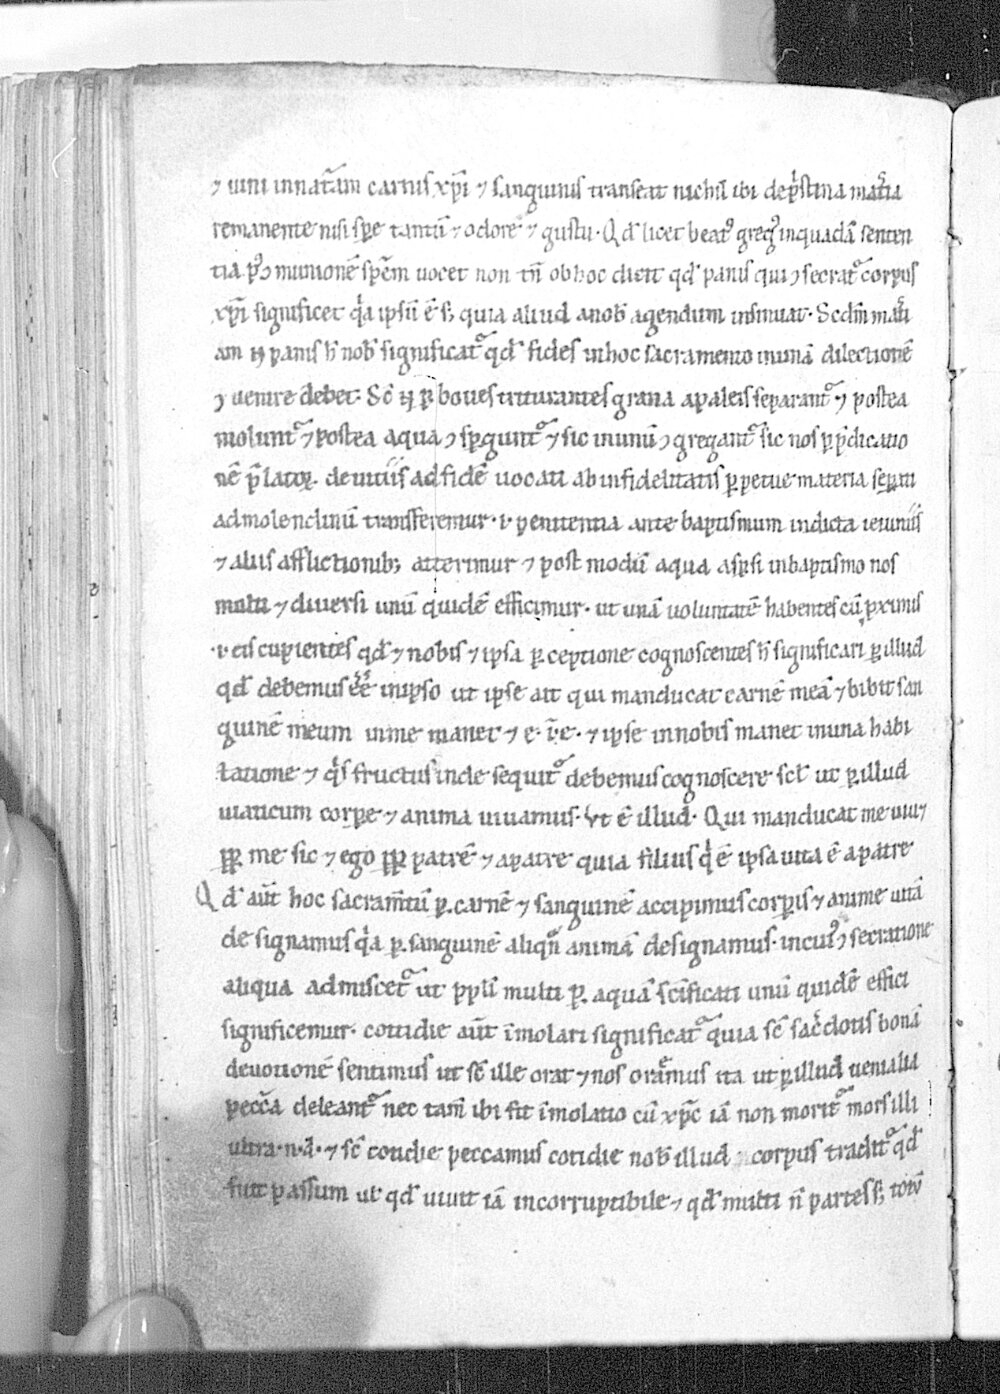 ⁊ uini innatam carnis xp̄i ⁊ sanguinis transeat nichil ibi depstina matia
remanente nisi spe tantū ⁊ odore ⁊ gustu. Qd licet beat' greg' inquadā senten
tia ꝑꝯmunionē sp̄em uocet non tn̄ ob hoc dicit qd panis qui ꝯsecrat' corpus
xp̄i significet qa ipsū ē s; quia aliud anob agendum insinuat. Scdm mati
am panis h̄ nob significat' qd fides inhoc sacramento inunā dilectionē
ꝯuenire debet. Sꝰ ꝑ boues triturantes grana apaleis separant' ⁊ postea
molunt' ⁊ postea aqua ꝯspgunt' ⁊ sic inunū ꝯgregant' sic nos ꝑ p̄dicatio
nē p̄latoꝝ. deuitiis ad fidē uocati ab infidelitatis ꝑpetue materia sepati
admolendinū transferemur. i. penitentia ante baptismum indicta ieiuniis
⁊ aliis afflictionib; atterimur ⁊ post modū aqua aspsi inbaptismo nos
multi ⁊ diuersi unū quidē efficimur. ut unā uoluntatē habentes cū pximis
.i. eis cupientes qd ⁊ nobis ⁊ ipsa ꝑceptione cognoscentes h̄ significari ꝑ illud
qd debemus eē inipso ut ipse ait qui manducat carnē meā ⁊ bibit san
guinē meum inme manet ⁊ e. i. e. ⁊ ipse innobis manet inuna habi
tatione ⁊ qs fructus inde sequit' debemus cognoscere scl ut ꝑ illud
uiaticum corpe ⁊ anima uiuamus. vt ē illud. Qui manducat me uiu⁊
ꝓꝑ me sic ⁊ ego ꝓꝑ patrē ⁊ apatre quia filius qi ē ipsa uita ē apatre
Qd aūt hoc sacram̄tū ꝑ carnē ⁊ sanguinē accipimus corpis ⁊ anime uitā
designamus qa ꝑ sanguinē aliqn̄ animā designamus. incui' ꝯsecratione
aliqua admiscet' ut ppli multi ꝑ aquā sc̄ificati unū quidē effici
significemur. cottidie aūt īmolari significat' quia sc̄ sac̄dotis bonā
deuotionē sentimus ut sc̄ ille orat ⁊ nos oram̄us ita ut ꝑ illud uenialia
pecc̄a deleant' nec tam̄ ibi fit īmolatio cū xp̄c iā non morit' mors illi
ultra. n. d. ⁊ sc̄ cotidie peccamus cotidie nob illud corpus tradit' qd
fuit passum ul qd uiuit iā incorruptibile ⁊ qd multi n̄ partes s; totū